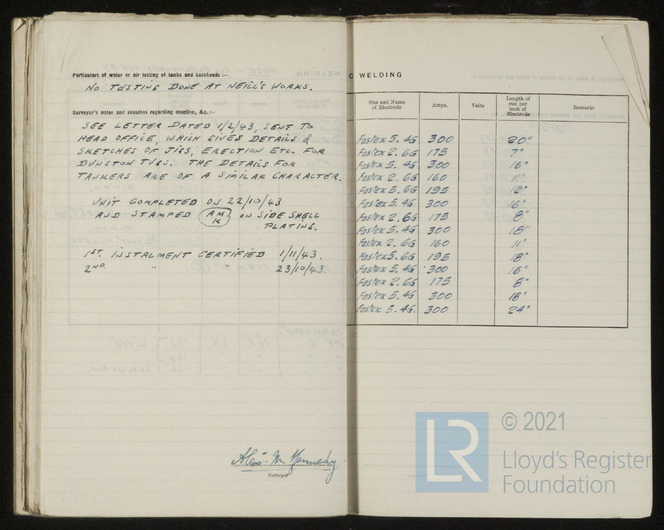 Particulars of water or air testing of tanks and bulkheads :—
NO TESTING DONE AT NEILL'S WORKS.
Surveyor's notes and sketches regarding erection, &c. :-
SEE LETTER DATED 1/2/43, SENT TO
HEAD OFFICE, WHICH GIVES DETAILS &
SKETCHES OF JIGS, ERECTION ETC. FOR
DUNSTON TUGS. THE DETAILS FOR
TANKERS ARE OF A SIMILAR CHARACTER.
UNIT COMPLETED ON 22/10/43
AND STAMPED AMK ON SIDE SHELL
PLATING.
1ST. INSTALMENT CERTIFIED 1/11/43.
2ND. " " 23/10/43.
Surveyor
C WELDING
Size and Name of Electrode Amps. Volts Length of run per inch of Electrode Remarks
Fastex 5. 4G 300 20"
Fastex 2. 6G 175 7"
Fastex 5. 4G 300 16"
Fastex 2. 6G 160 11"
Fastex 5. 6G 195 12"
Fastex 5. 4G 300 16"
Fastex 2. 6G 175 8"
Fastex 5. 4G 300 18"
Fastex 2. 6G 160 11"
Fastex 5. 6G 195 18"
Fastex 5. 4G 300 16"
Fastex 2. 6G 175 8"
Fastex 5. 4G 300 18"
Fastex 5. 4G. 300 24"
LR
© 2021
Lloyd's Register
Foundation